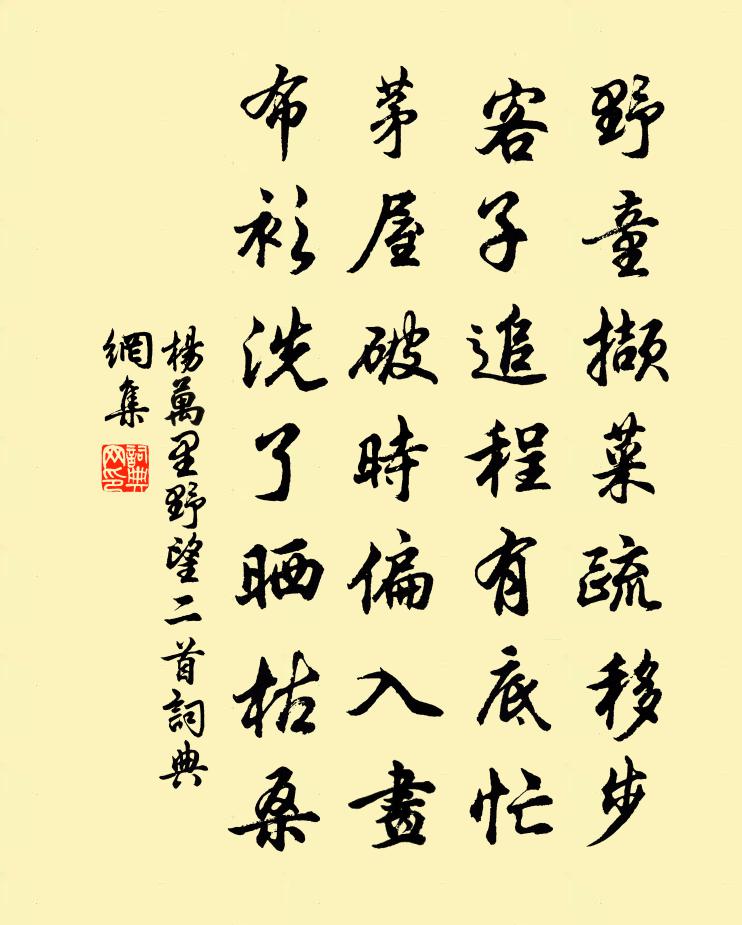 野童擷菜疏移步
客子追程有底忙
茅屋破時偏入畫
布衫洗了晒枯桑
楊萬里野望二首詞典
網集
詞典
网印